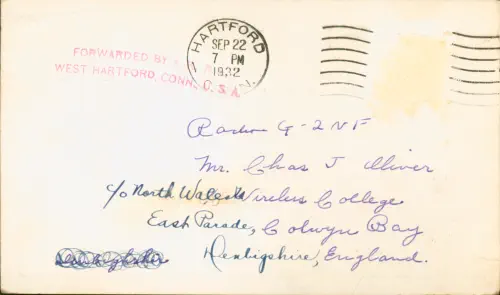 HARTFORD
SEP 22
7 PM
1932
FORWARDED BY
WEST HARTFORD, CONN. U.S.A.
Radio G-2NF
Mr. Chas J Oliver
c/o North Wales Wireless College
East Parade, Colwyn Bay
Denbigshire, England.